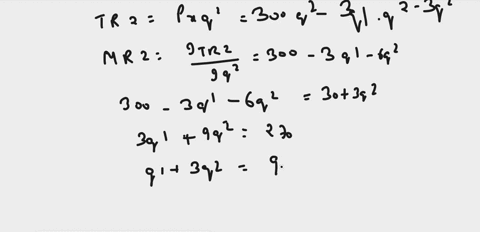 TR2 = Pxq¹ = 300q² - 3q1.q² - 3q²
MR2: ∂TR2/∂q² = 300 - 3q1 - 6q²
300 - 3q¹ - 6q² = 30+3q²
3q¹ + 9q² = 270
q¹ + 3q² = 9.